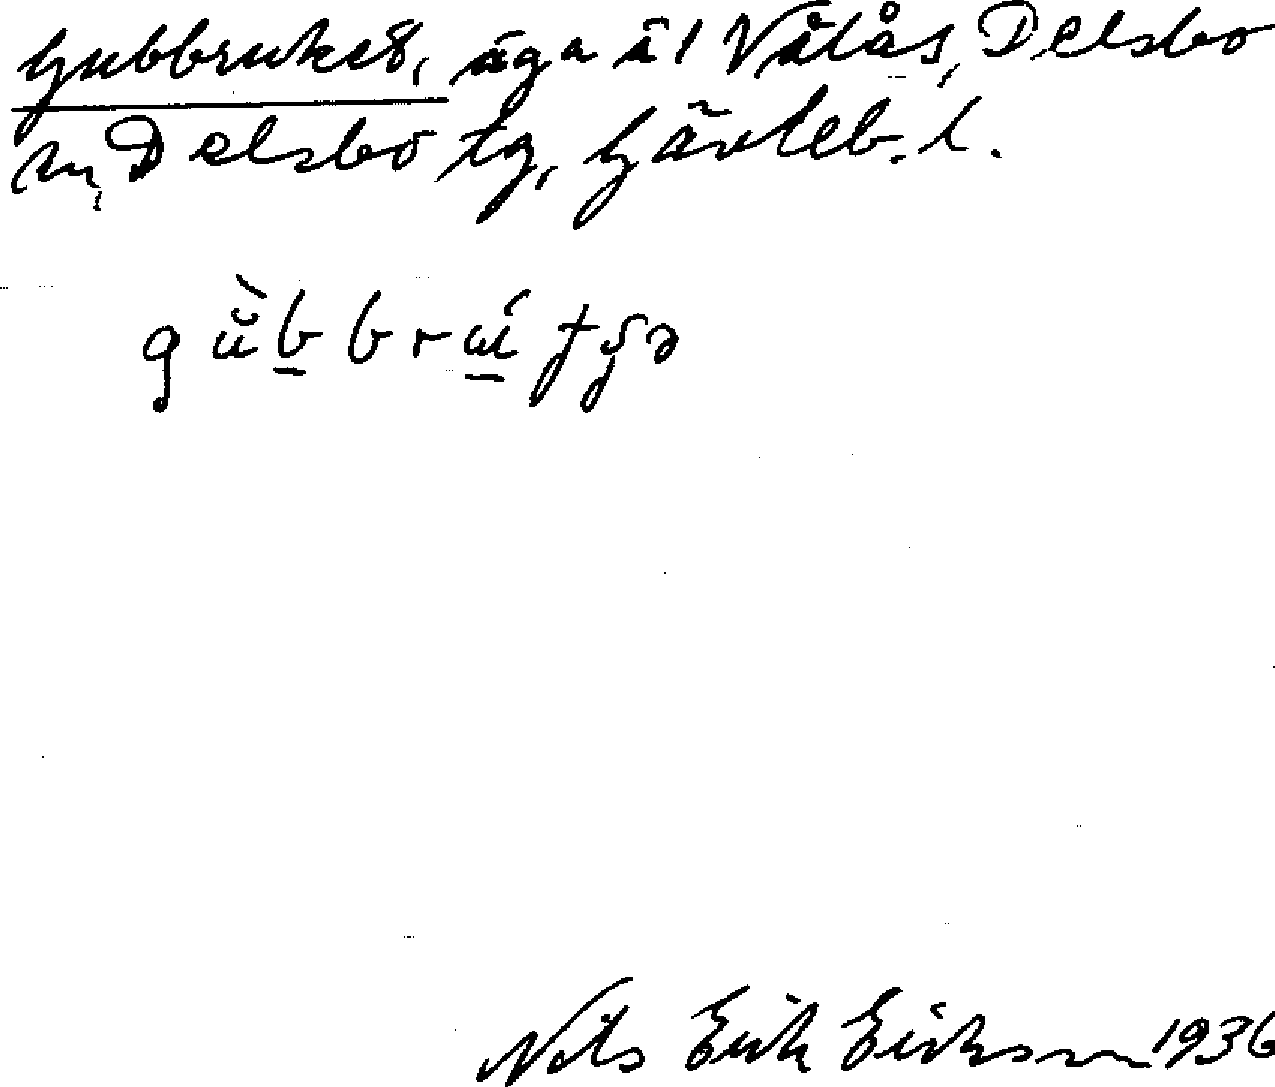 Gubbruket, äga ä 1 Vålås, Delsbo
sn, Delsbo tg, Gävleb. l.
Nils Erik Eriksson 1936